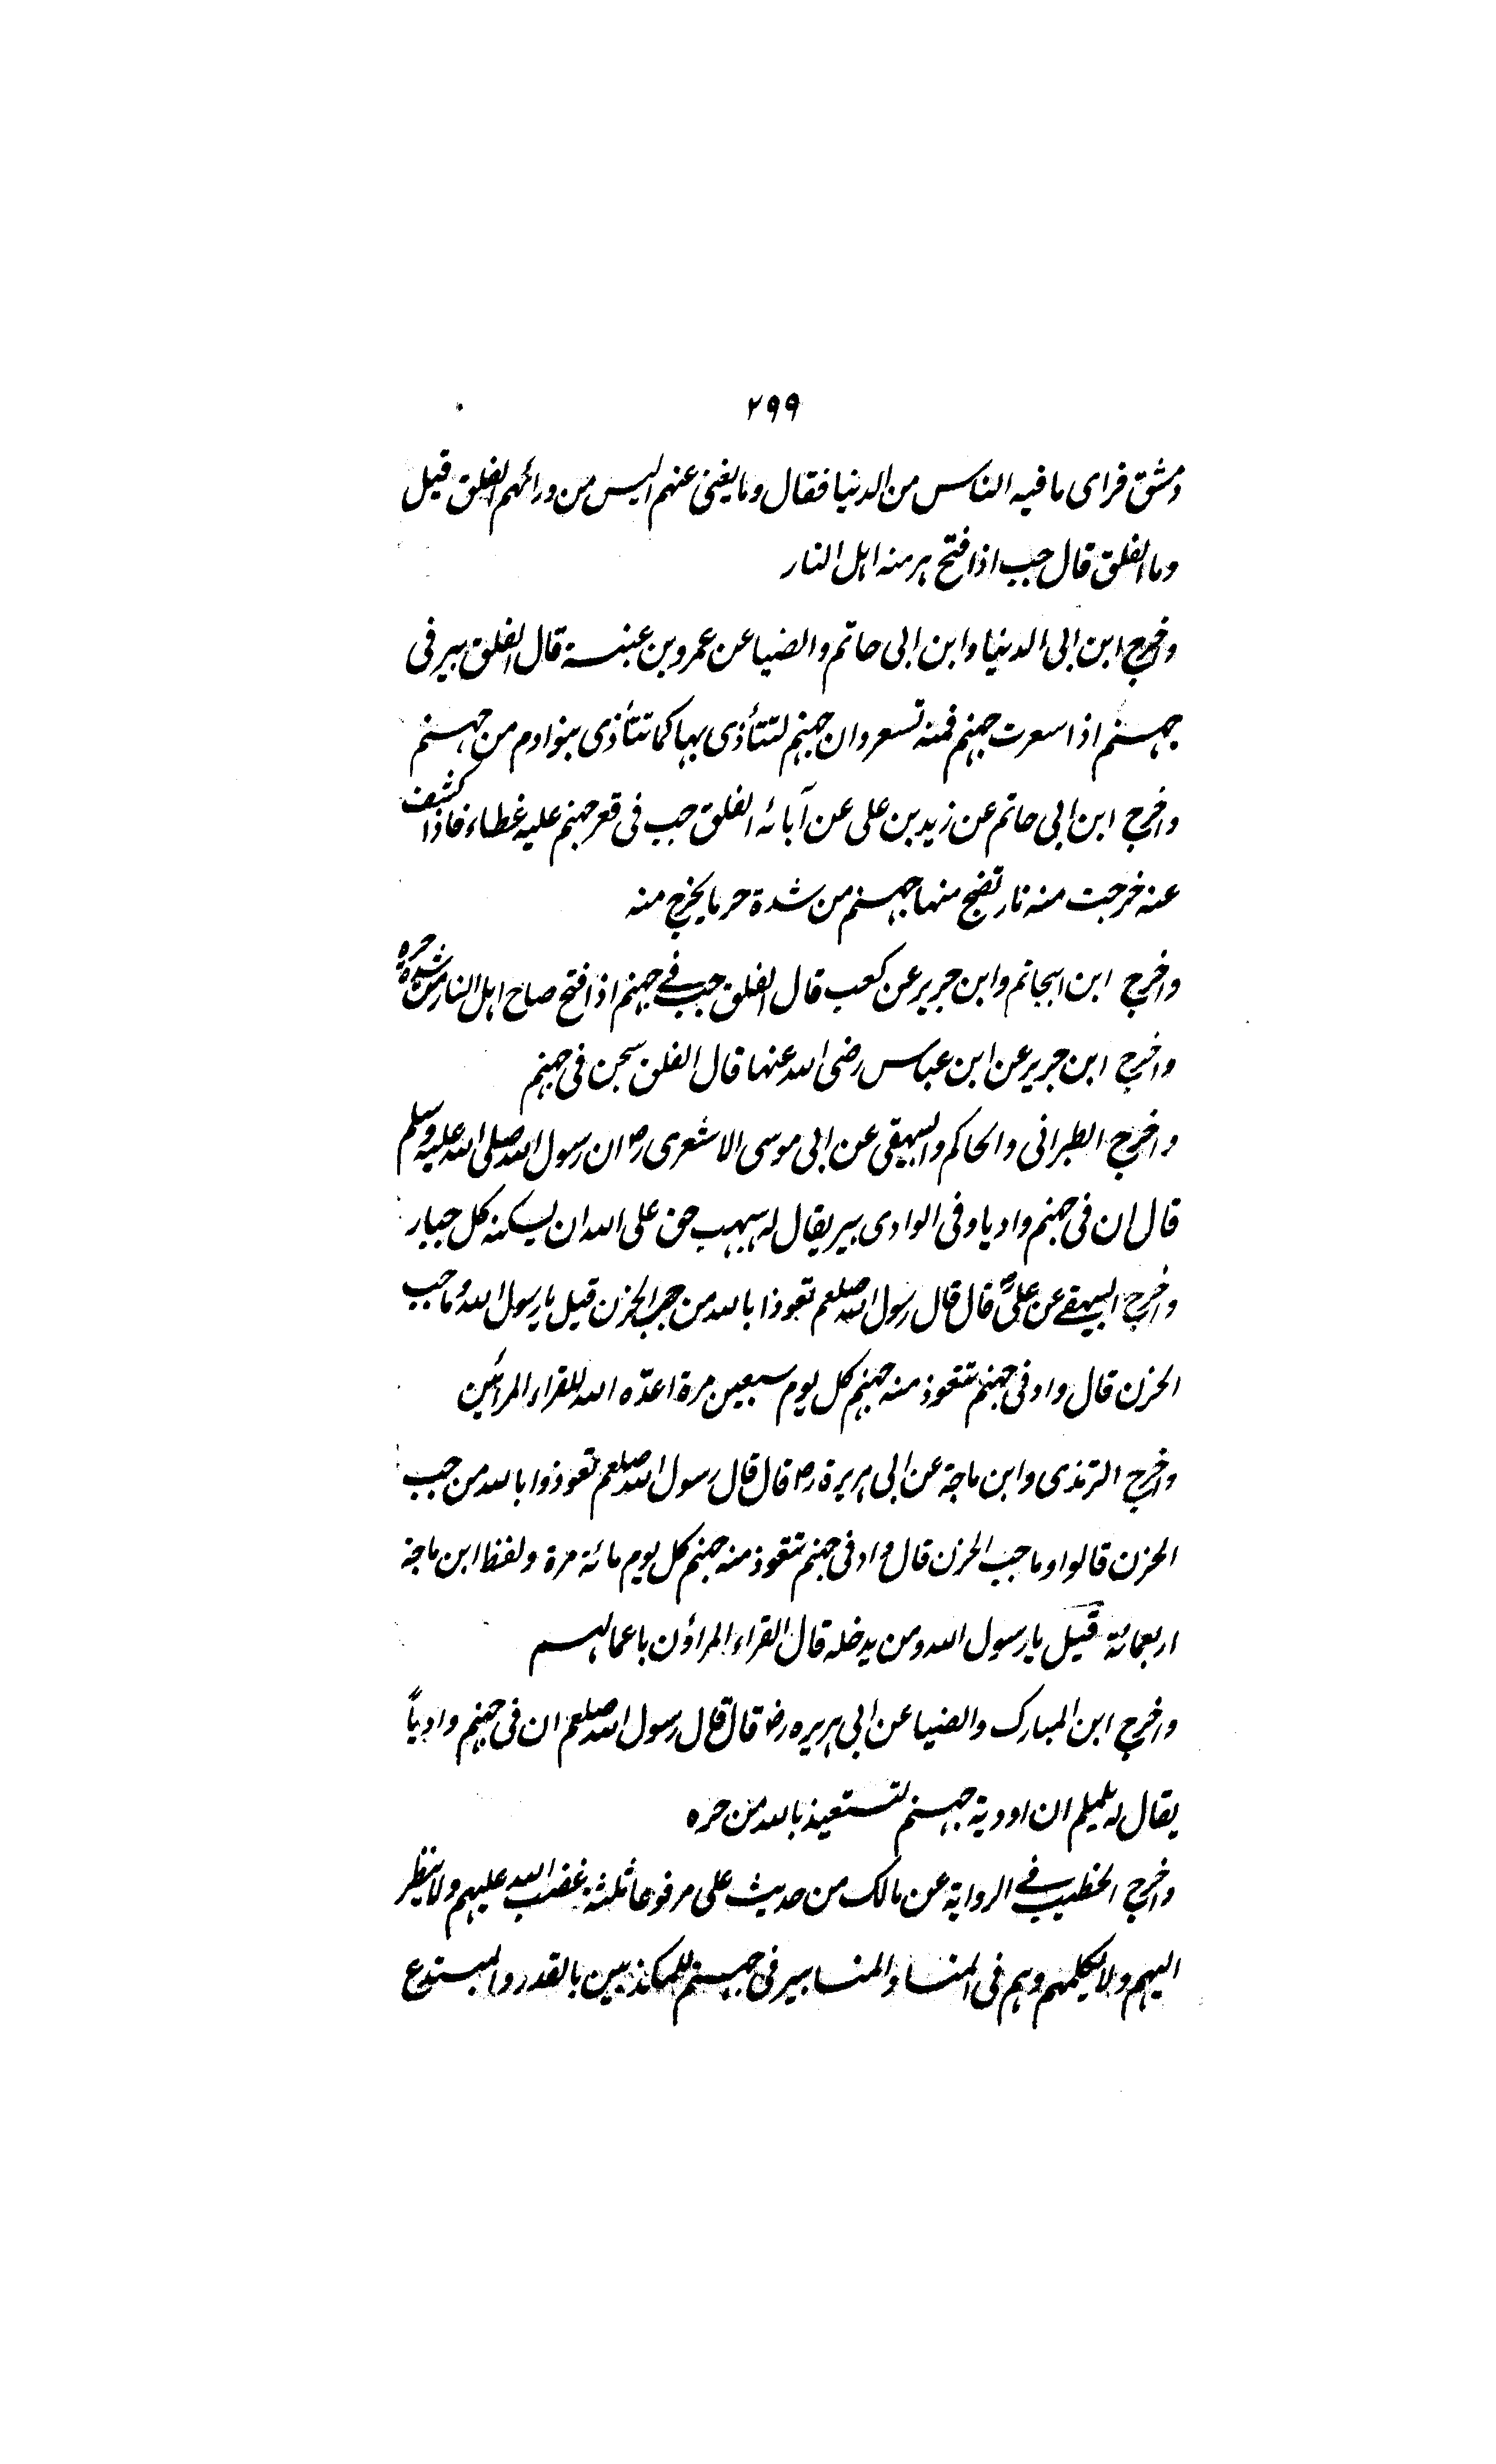 ۲۹۹
دمشق فرای ما فیه الناس من الدنیا فقال وما یغنی عنهم الیس من ورائهم الفلق قیل
وما الفلق قال جب اذا فتح هر منه اهل النار
واخرج ابن ابی الدنیا وابن ابی حاتم والضیا عن عمرو بن عبسة قال الفلق بیر فی
جهنم اذا سعرت جهنم فمنه تسعر وان جهنم لتتأذی بها کما تتأذی بنو ادم من جهنم
واخرج ابن ابی حاتم عن زید بن علی عن آبائه الفلق جب فی قعر جهنم علیه غطاء فاذا کشف
عنه خرجت منه نار تضج منها جهنم من شدة حر ما یخرج منه
واخرج ابن ابیحاتم وابن جریر عن کعب قال الفلق جب فی جهنم اذا فتح صاح اهل النار من شدة حره
واخرج ابن جریر عن ابن عباس رضی الله عنهما قال الفلق سجن فی جهنم
واخرج الطبرانی والحاکم والبیهقی عن ابی موسی الاشعری رض ان رسول الله صلی الله علیه وسلم
قال ان فی جهنم وادیا وفی الوادی بیر یقال له هبهب حق علی الله ان یسکنه کل جبار
واخرج البیهقی عن علی رض قال قال رسول الله صلعم تعوذا بالله من جب الحزن قیل یا رسول الله وما جب
الحزن قال واد فی جهنم تتعوذ منه جهنم کل یوم سبعین مرة اعدّه الله للقراء المرائین
واخرج الترمذی وابن ماجة عن ابی هریرة رض قال قال رسول الله صلعم تعوذوا بالله من جب
الحزن قالوا وما جب الحزن قال واد فی جهنم تتعوذ منه جهنم کل یوم مائة مرة ولفظ ابن ماجة
اربعمائة قیل یا رسول الله ومن یدخله قال القراء المراؤن باعمالهم
واخرج ابن المبارک والضیا عن ابی هریره رض قال قال رسول الله صلعم ان فی جهنم وادیاً
یقال له یلملم ان اودیة جهنم لتستعیذ بالله من حره
واخرج الخطیب فی الروایة عن مالک من حدیث علی مرفوعا ثلثة غضب الله علیهم ولا ینظر
الیهم ولا یکلمهم وهم فی المنسا والمنسا بیر فی جهنم للمکذبین بالقدر والمبتدع